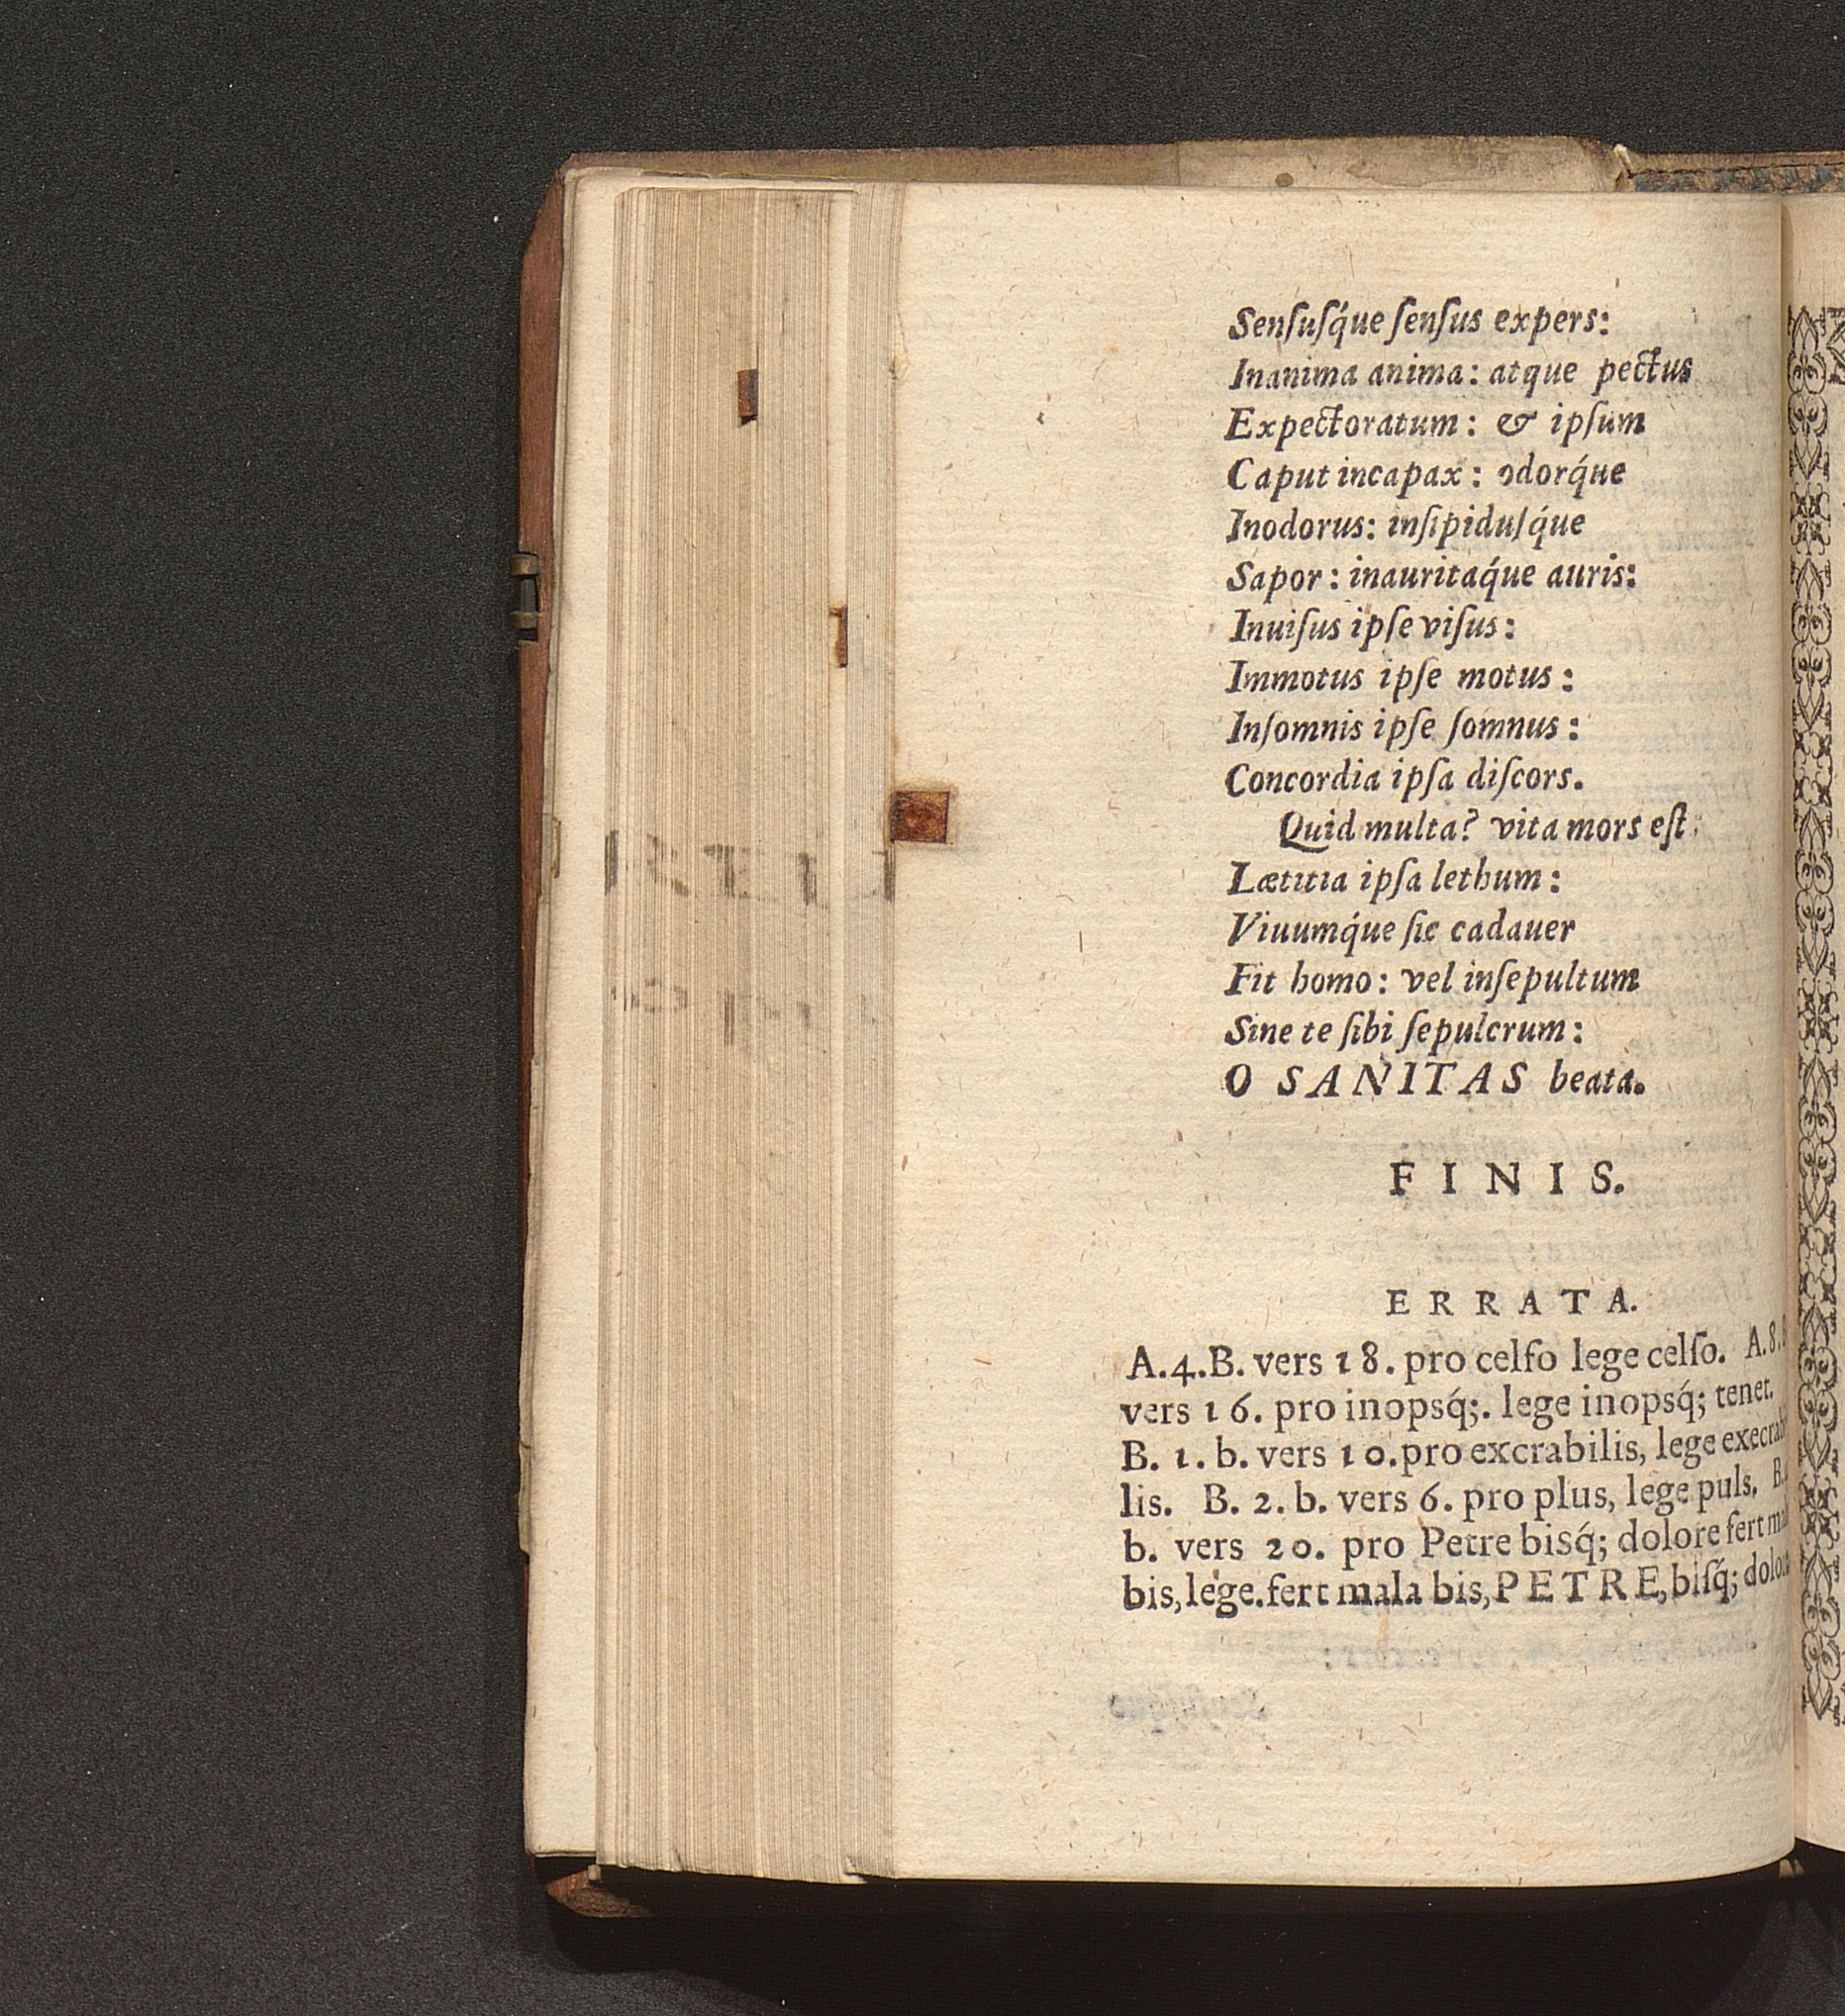 Senſuſq́ue ſenſus expers:
Inanima anima: atque pectus
Expectoratum: & ipſum
Caput incapax: odorq́ue
Inodorus: inſipiduſq́ue
Sapor: inauritaq́ue auris:
Inuiſus ipſe viſus:
Immotus ipſe motus:
Inſomnis ipſe ſomnus:
Concordia ipſa diſcors.
Quid multa? vita mors eſt:
Lætitia ipſa lethum:
Viuumq́ue ſic cadauer
Fit homo: vel inſepultum
Sine te ſibi ſepulcrum:
O SANITAS beata.
FINIS.
ERRATA.
A.4.B. vers 18. pro celfo lege celſo. A.8.
vers 16. pro inopsq́;. lege inopsq́; tenet.
B. 1. b. vers 10. pro excrabilis, lege execrabi
lis. B. 2. b. vers 6. pro plus, lege puls. B.
b. vers 20. pro Petre bisq́; dolore fert mal
bis, lege. fert mala bis, PETRE, biſq́; dolo